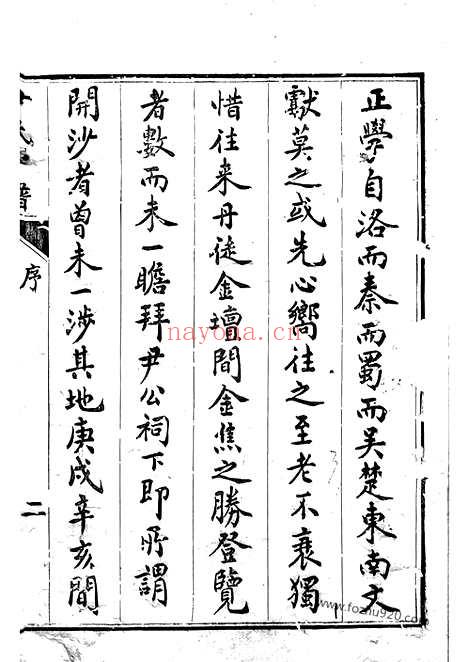 正學自洛而秦而蜀而吴楚東南文
獻莫之或先心嚮往之至老不衰獨
惜往来丹徒金壇間金焦之勝登覽
者數而未一瞻拜尹公祠下即所謂
開沙者曾未一涉其地庚戌辛亥間
氏 譜
序
二
nayona.cn
www.fozhu920.com